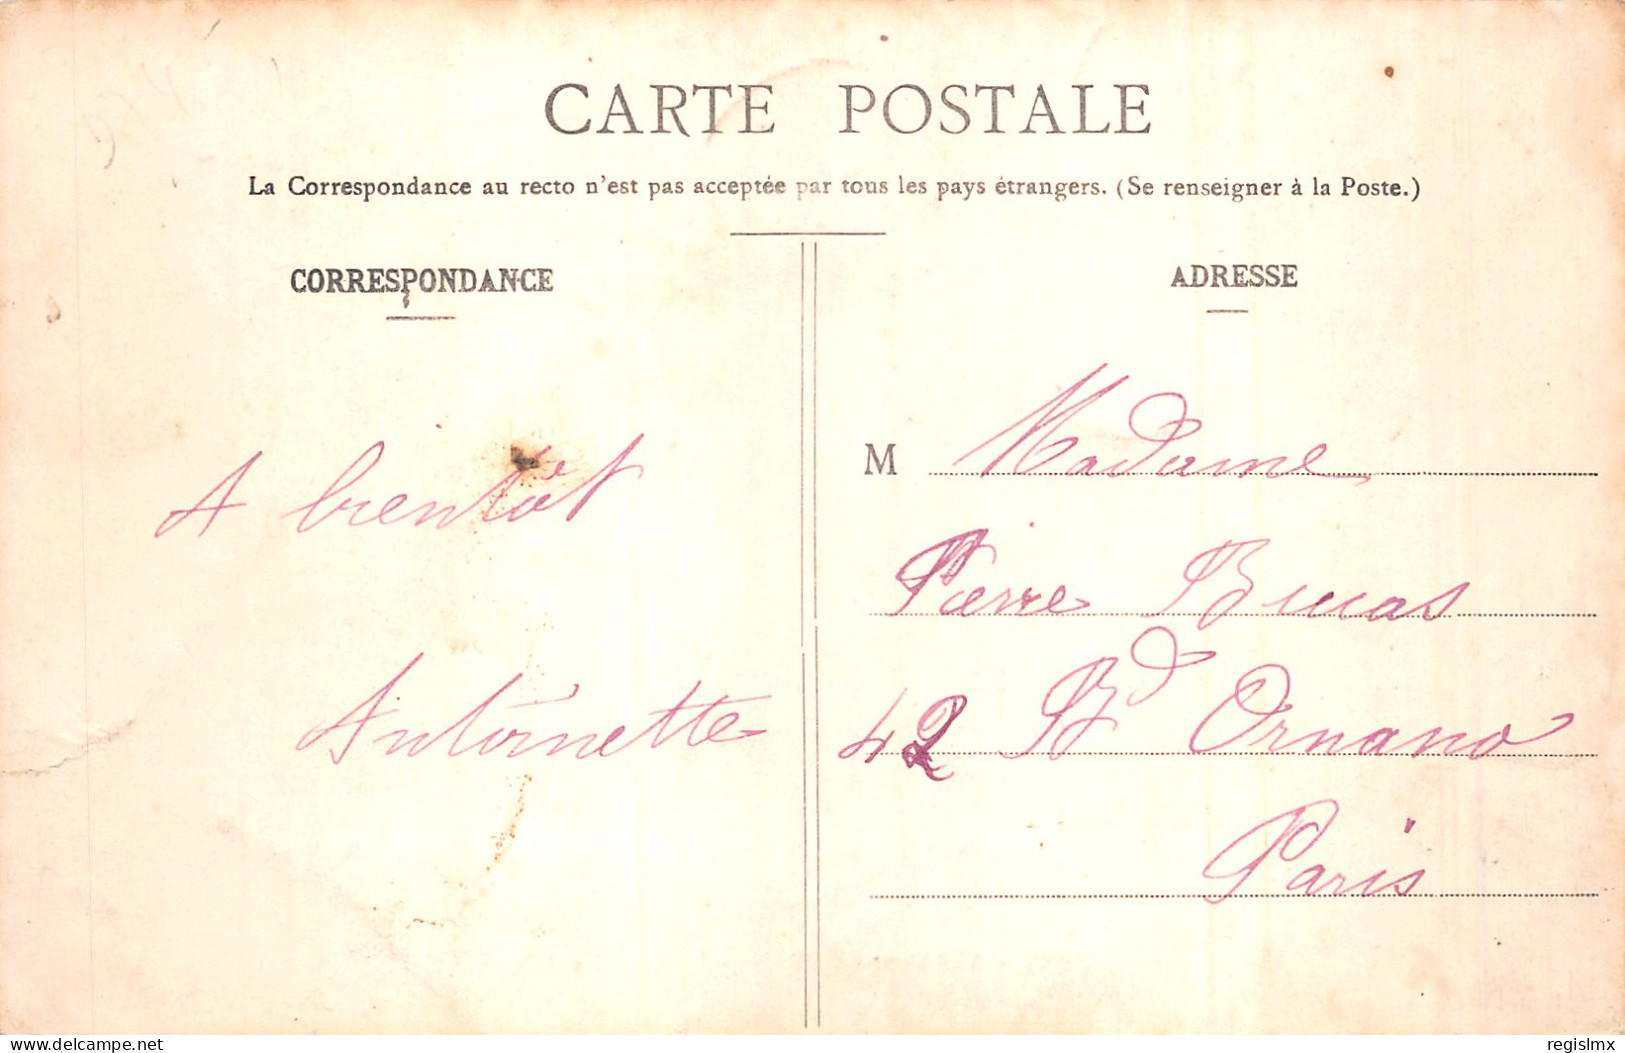 CARTE POSTALE
La Correspondance au recto n'est pas acceptée par tous les pays étrangers. (Se renseigner à la Poste.)
CORRESPONDANCE
A bientôt
Antoinette
ADRESSE
M Madame
Pierre
42 Bd Ornano
Paris
www.delcampe.net
regislmx